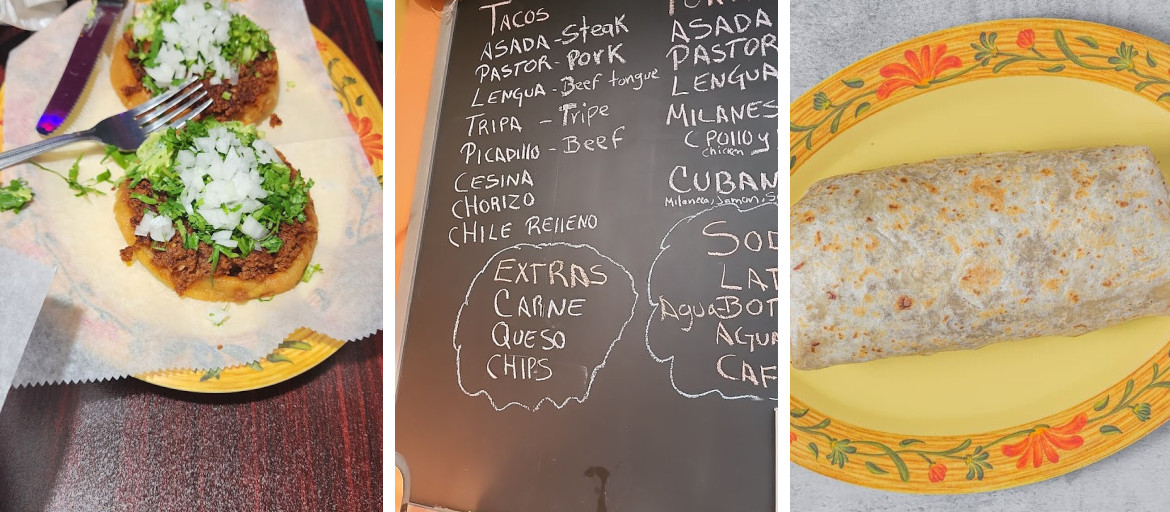 TACOS
ASADA - Steak
PASTOR - Pork
LENGUA - Beef tongue
TRIPA - Tripe
PICADILLO - Beef
CESINA
CHORIZO
CHILE RELLENO
EXTRAS
CARNE
QUESO
CHIPS
ASADA
PASTOR
LENGUA
MILANES
( Pollo y
chicken
CUBAN
Milanesa, Jamon, S
SOD
LAT
Agua-BOT
AGUA
CAF